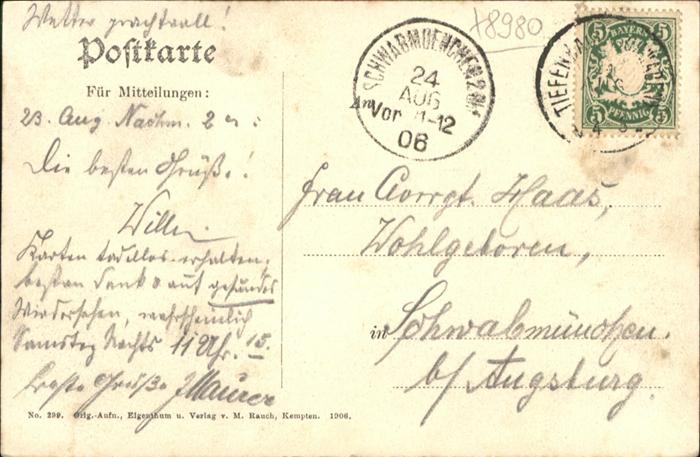 Wetter prachtvoll!
+8980
Postkarte
Für Mitteilungen:
23. Aug. Nachm. 2 Uhr:
Die besten Grüße!
Willy.
Karten tadellos erhalten,
besten Dank & auf gesundes
Wiedersehen, wahrscheinlich
Samstag Nachts 11 Uhr. 15.
Grüße JMaurer
SCHWABMUENCHEN 2
24
AUG
Vor 11-12
06
TIEFENBACH
BAYERN
5 5
5 5
PFENNIG
Frau Haas,
Wohlgeboren,
in Schwabmünchen.
b/ Augsburg.
No. 299. Orig.-Aufn., Eigenthum u. Verlag v. M. Rauch, Kempten. 1906.